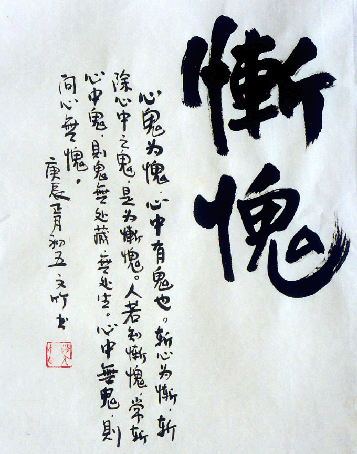 慚愧
心鬼为愧，心中有鬼也。斩心为慚，斩
除心中之鬼，是为慚愧。人若知慚愧，常斩
心中鬼，則鬼無处藏，無处生。心中無鬼，則
问心無愧。
庚辰正月初五 文竹书